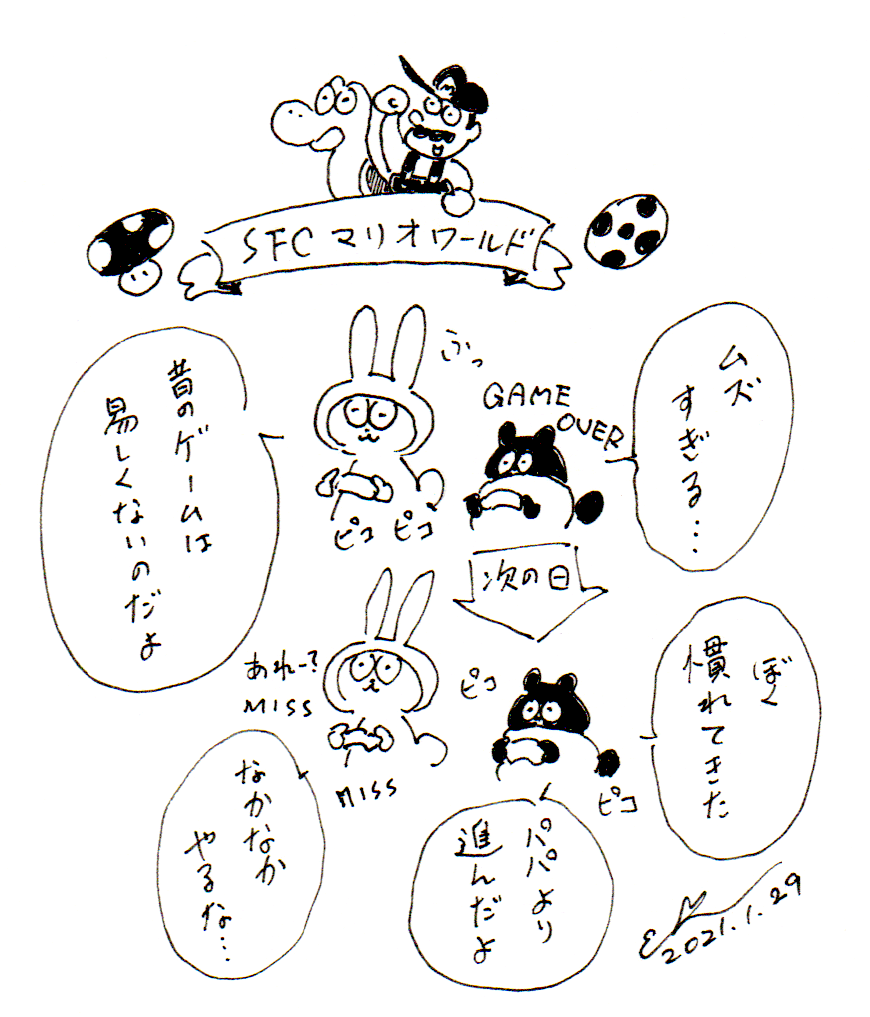 SFC マリオワールド
ムズ
すぎる…
GAME
OVER
ぷっ
ピコ ピコ
昔のゲームは
易しくないのだよ
次の日
ぼく
慣れてきた
ピコ
ピコ
パパより
進んだよ
あれー?
MISS
MISS
なかなか
やるな…
2021.1.29